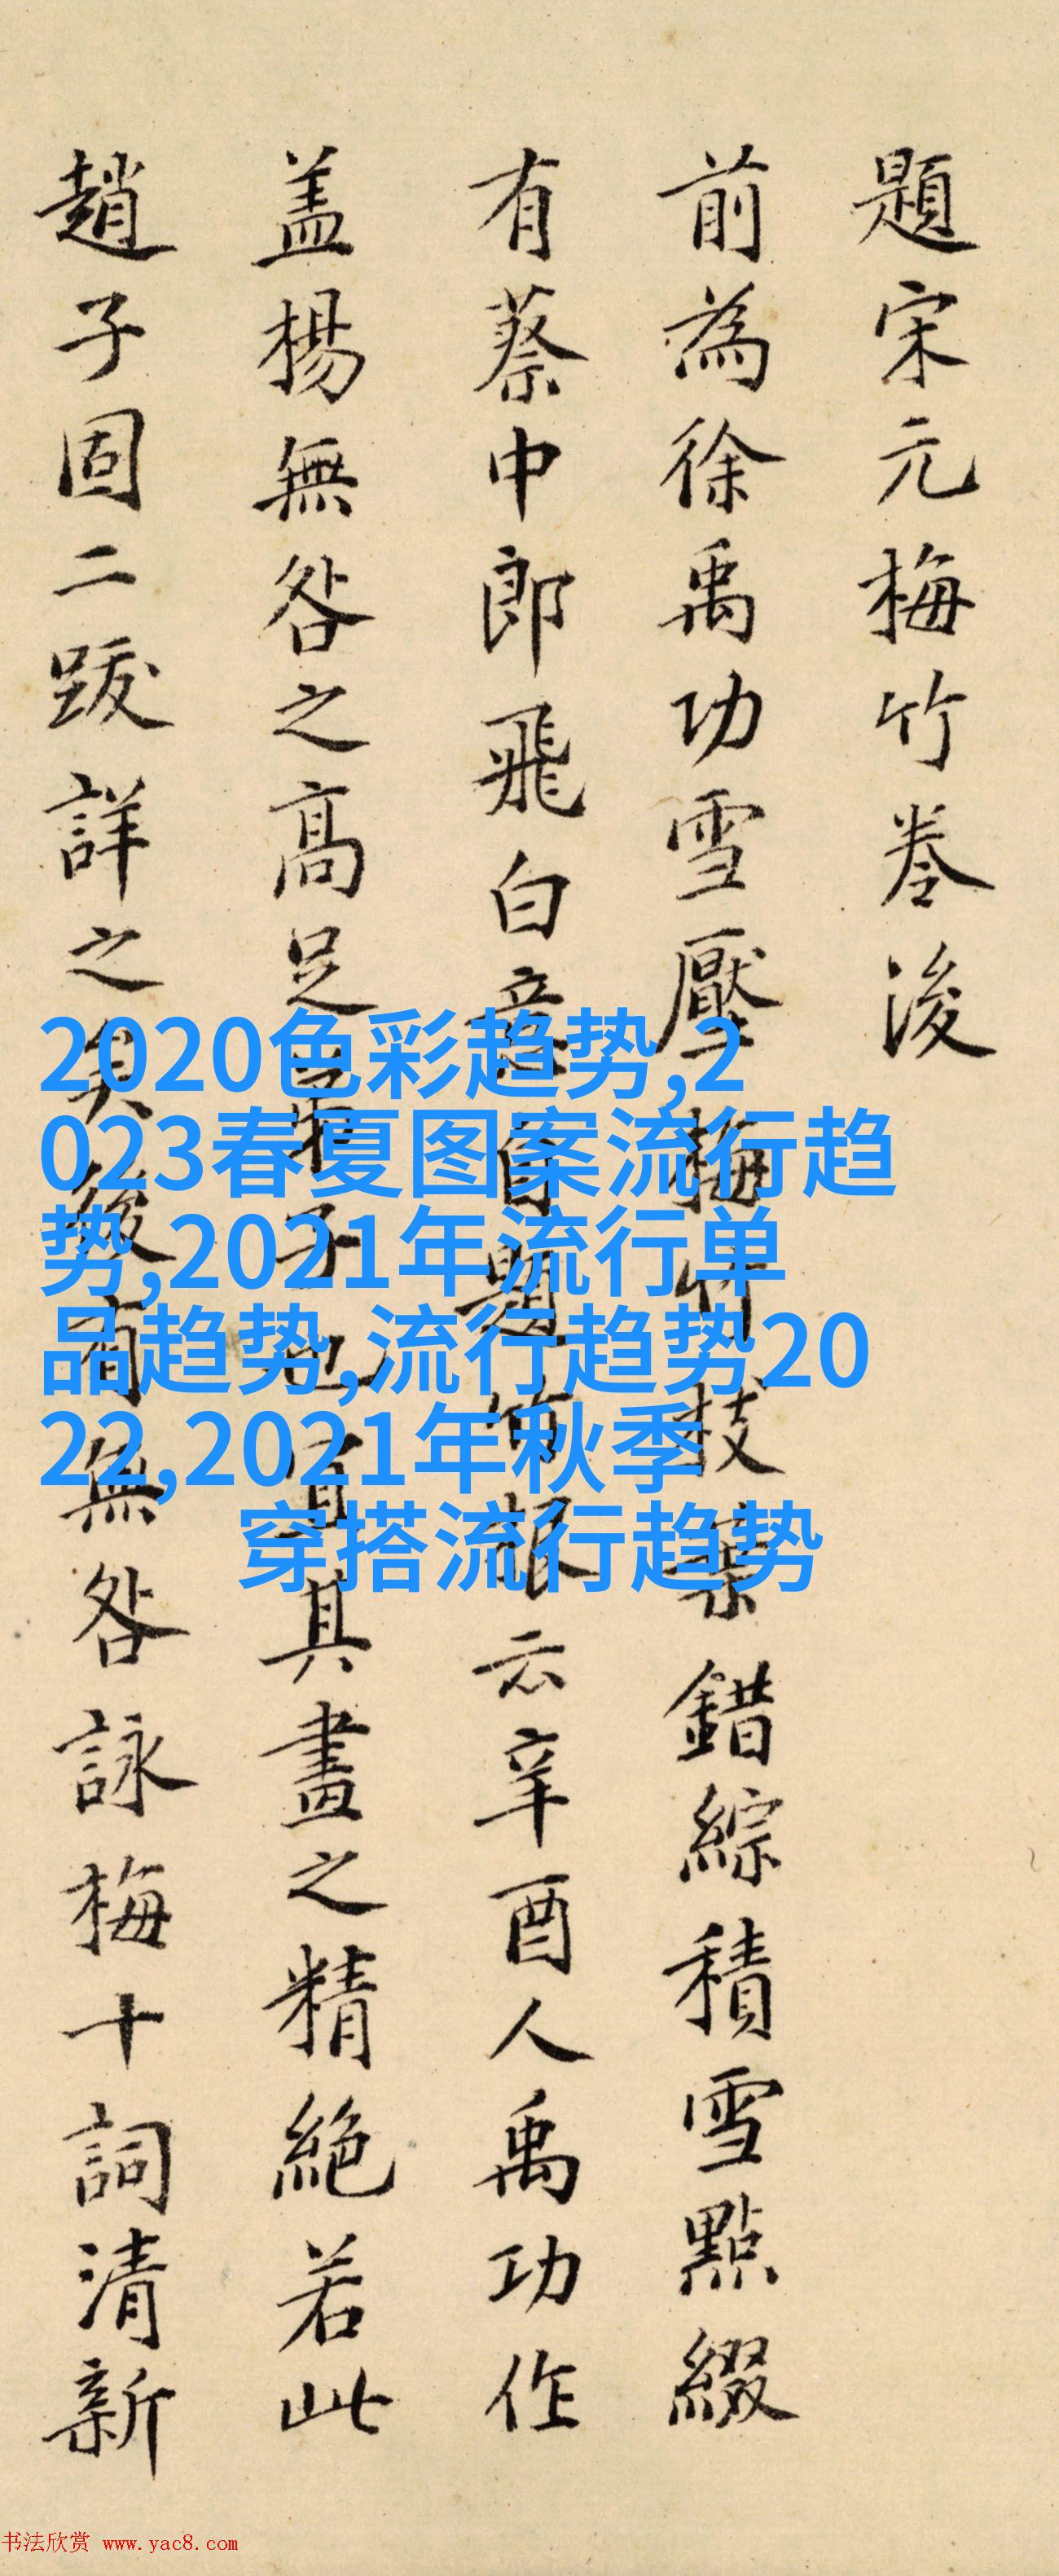 題宋元梅竹卷後
前為徐禹功雪壓梅竹枝葉錯綜積雪點綴
有蔡中郎飛白意自題根云辛酉人禹功作
盖楊無咎之高足弟子也宜其畫之精絕若此
趙子固二跋詳之矣後有無咎詠梅十詞清新
2020色彩趋势,2
023春夏图案流行趋
势,2021年流行单
品趋势,流行趋势20
22,2021年秋季
穿搭流行趋势
书法欣赏 www.yac8.com